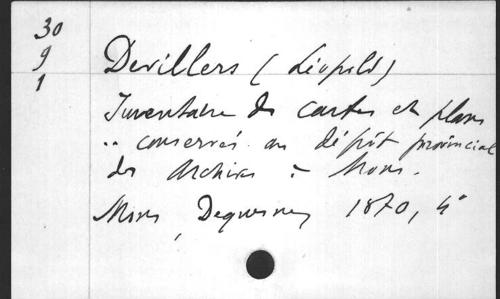 30
9
1
Devillers (Léopold)
Inventaire des cartes et plans
.. conservés au dépôt provincial
des Archives à Mons.
Mons, Dequesne, 1870, 4°